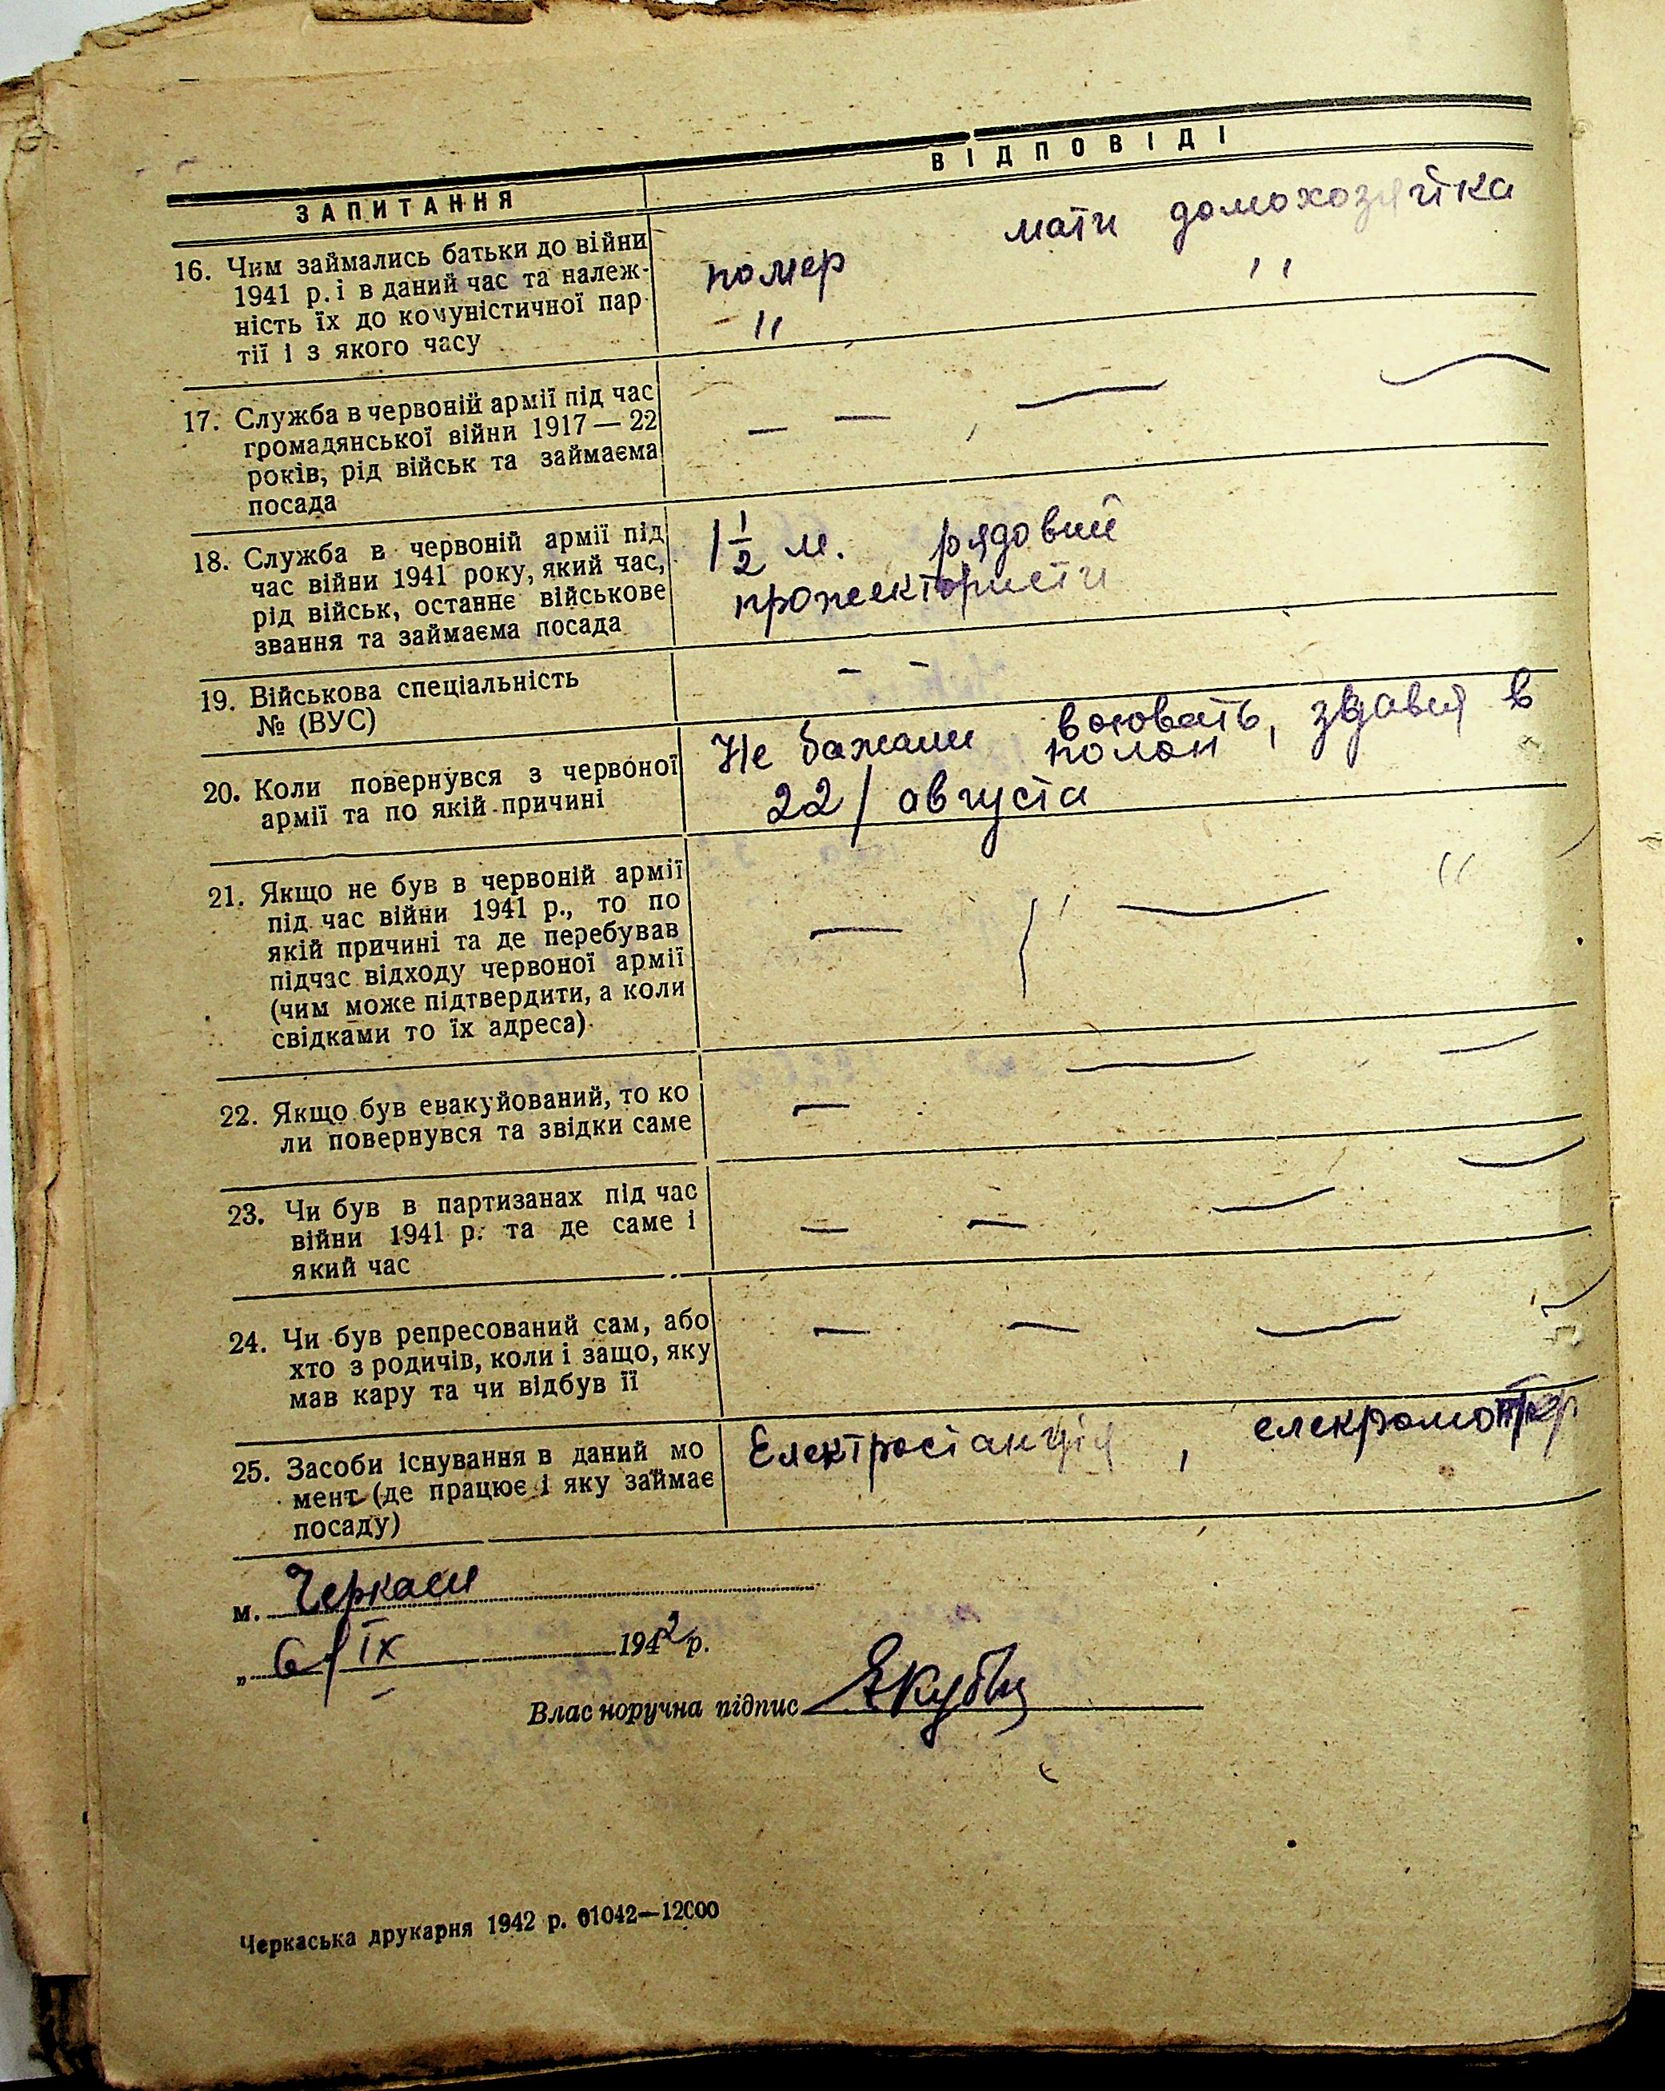 ЗАПИТАННЯ
ВІДПОВІДІ
16. Чим займались батьки до війни
1941 р. і в даний час та належ-
ність їх до комуністичної пар-
тії і з якого часу
мати домохозяйка
помер
"
"
17. Служба в червоній армії під час
громадянської війни 1917 — 22
років, рід військ та займаєма
посада
— — — —
18. Служба в червоній армії під
час війни 1941 року, який час,
рід військ, останнє військове
звання та займаєма посада
1 1/2 м. рядовий
прожектористи
19. Військова спеціальність
№ (ВУС)
— —
20. Коли повернувся з червоної
армії та по якій причині
Не бажали воювать, здався в
полон
22/августа
21. Якщо не був в червоній армії
під час війни 1941 р., то по
якій причині та де перебував
підчас відходу червоної армії
(чим може підтвердити, а коли
свідками то їх адреса)
— —
22. Якщо був евакуйований, то ко
ли повернувся та звідки саме
— — —
23. Чи був в партизанах під час
війни 1941 р. та де саме і
який час
— — — —
24. Чи був репресований сам, або
хто з родичів, коли і защо, яку
мав кару та чи відбув її
— — — —
25. Засоби існування в даний мо
мент (де працює і яку займає
посаду)
Електростанція, елекромонтер
м. Черкаси
„ 6/IX 1942 р.
Власноручна підпис
Черкаська друкарня 1942 р. 01042—12000